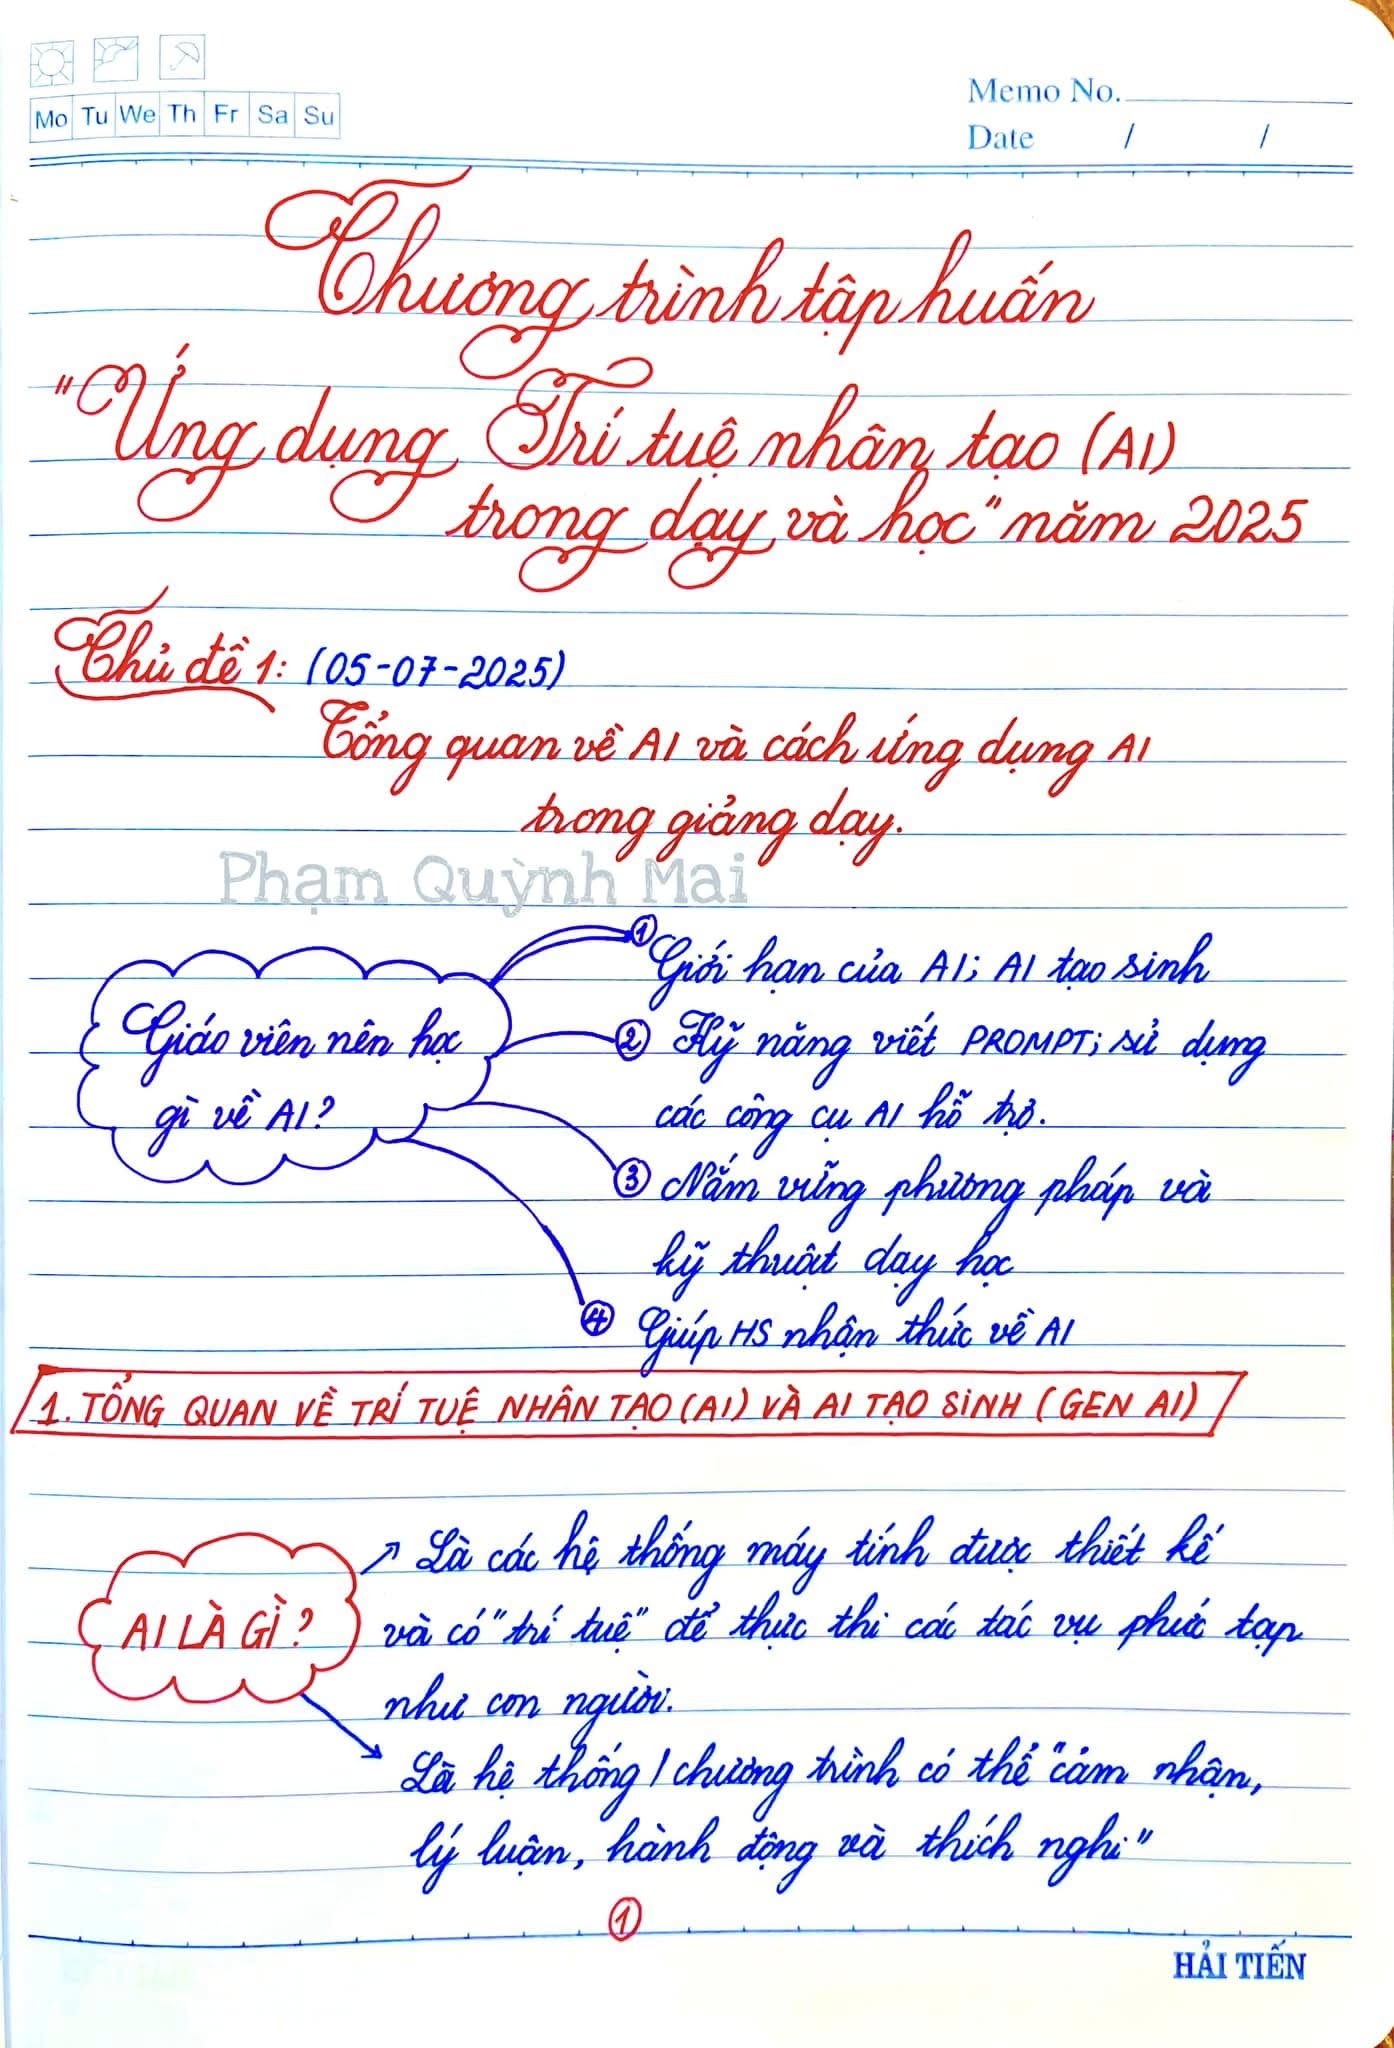 Mo Tu We Th Fr Sa Su
Memo No.
Date / /
Chương trình tập huấn
"Ứng dụng Trí tuệ nhân tạo (AI)
trong dạy và học" năm 2025
Chủ đề 1: (05-07-2025)
Tổng quan về AI và cách ứng dụng AI
trong giảng dạy.
Phạm Quỳnh Mai
Giáo viên nên học
gì về AI?
① Giới hạn của AI; AI tạo sinh
② Kỹ năng viết PROMPT; sử dụng
các công cụ AI hỗ trợ.
③ Nắm vững phương pháp và
kỹ thuật dạy học
④ Giúp HS nhận thức về AI
1. TỔNG QUAN VỀ TRÍ TUỆ NHÂN TẠO (AI) VÀ AI TẠO SINH (GEN AI)
AI LÀ GÌ?
Là các hệ thống máy tính được thiết kế
và có "trí tuệ" để thực thi các tác vụ phức tạp
như con người.
Là hệ thống / chương trình có thể "cảm nhận,
lý luận, hành động và thích nghi"
①
HẢI TIẾN